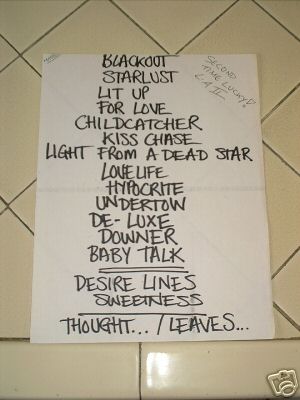 BLACKOUT
STARLUST
LIT UP
FOR LOVE
CHILDCATCHER
KISS CHASE
LIGHT FROM A DEAD STAR
LOVELIFE
HYPOCRITE
UNDERTOW
DE-LUXE
DOWNER
BABY TALK
DESIRE LINES
SWEETNESS
THOUGHT... / LEAVES...
SECOND
TIME LUCKY!
L.A. II